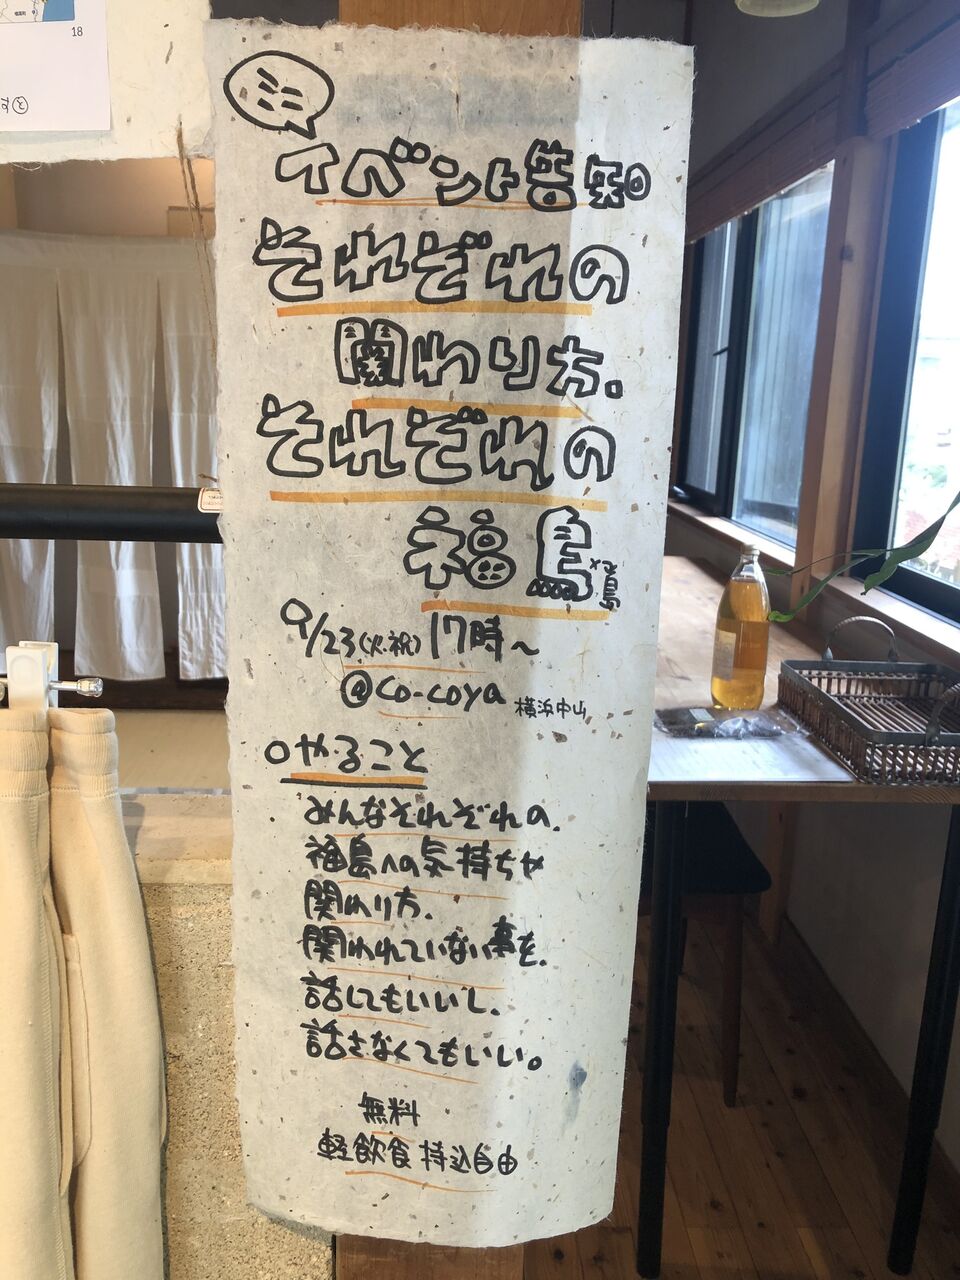 18
ミニ
イベント告知
それぞれの
関わり方.
それぞれの
福島
9/23(火・祝) 17時〜
@co-coya 横浜中山
○やること
みんなそれぞれの.
福島への気持ちや
関わり方.
関われていない事を.
話してもいいし.
話さなくてもいい。
無料
軽飲食 持込自由